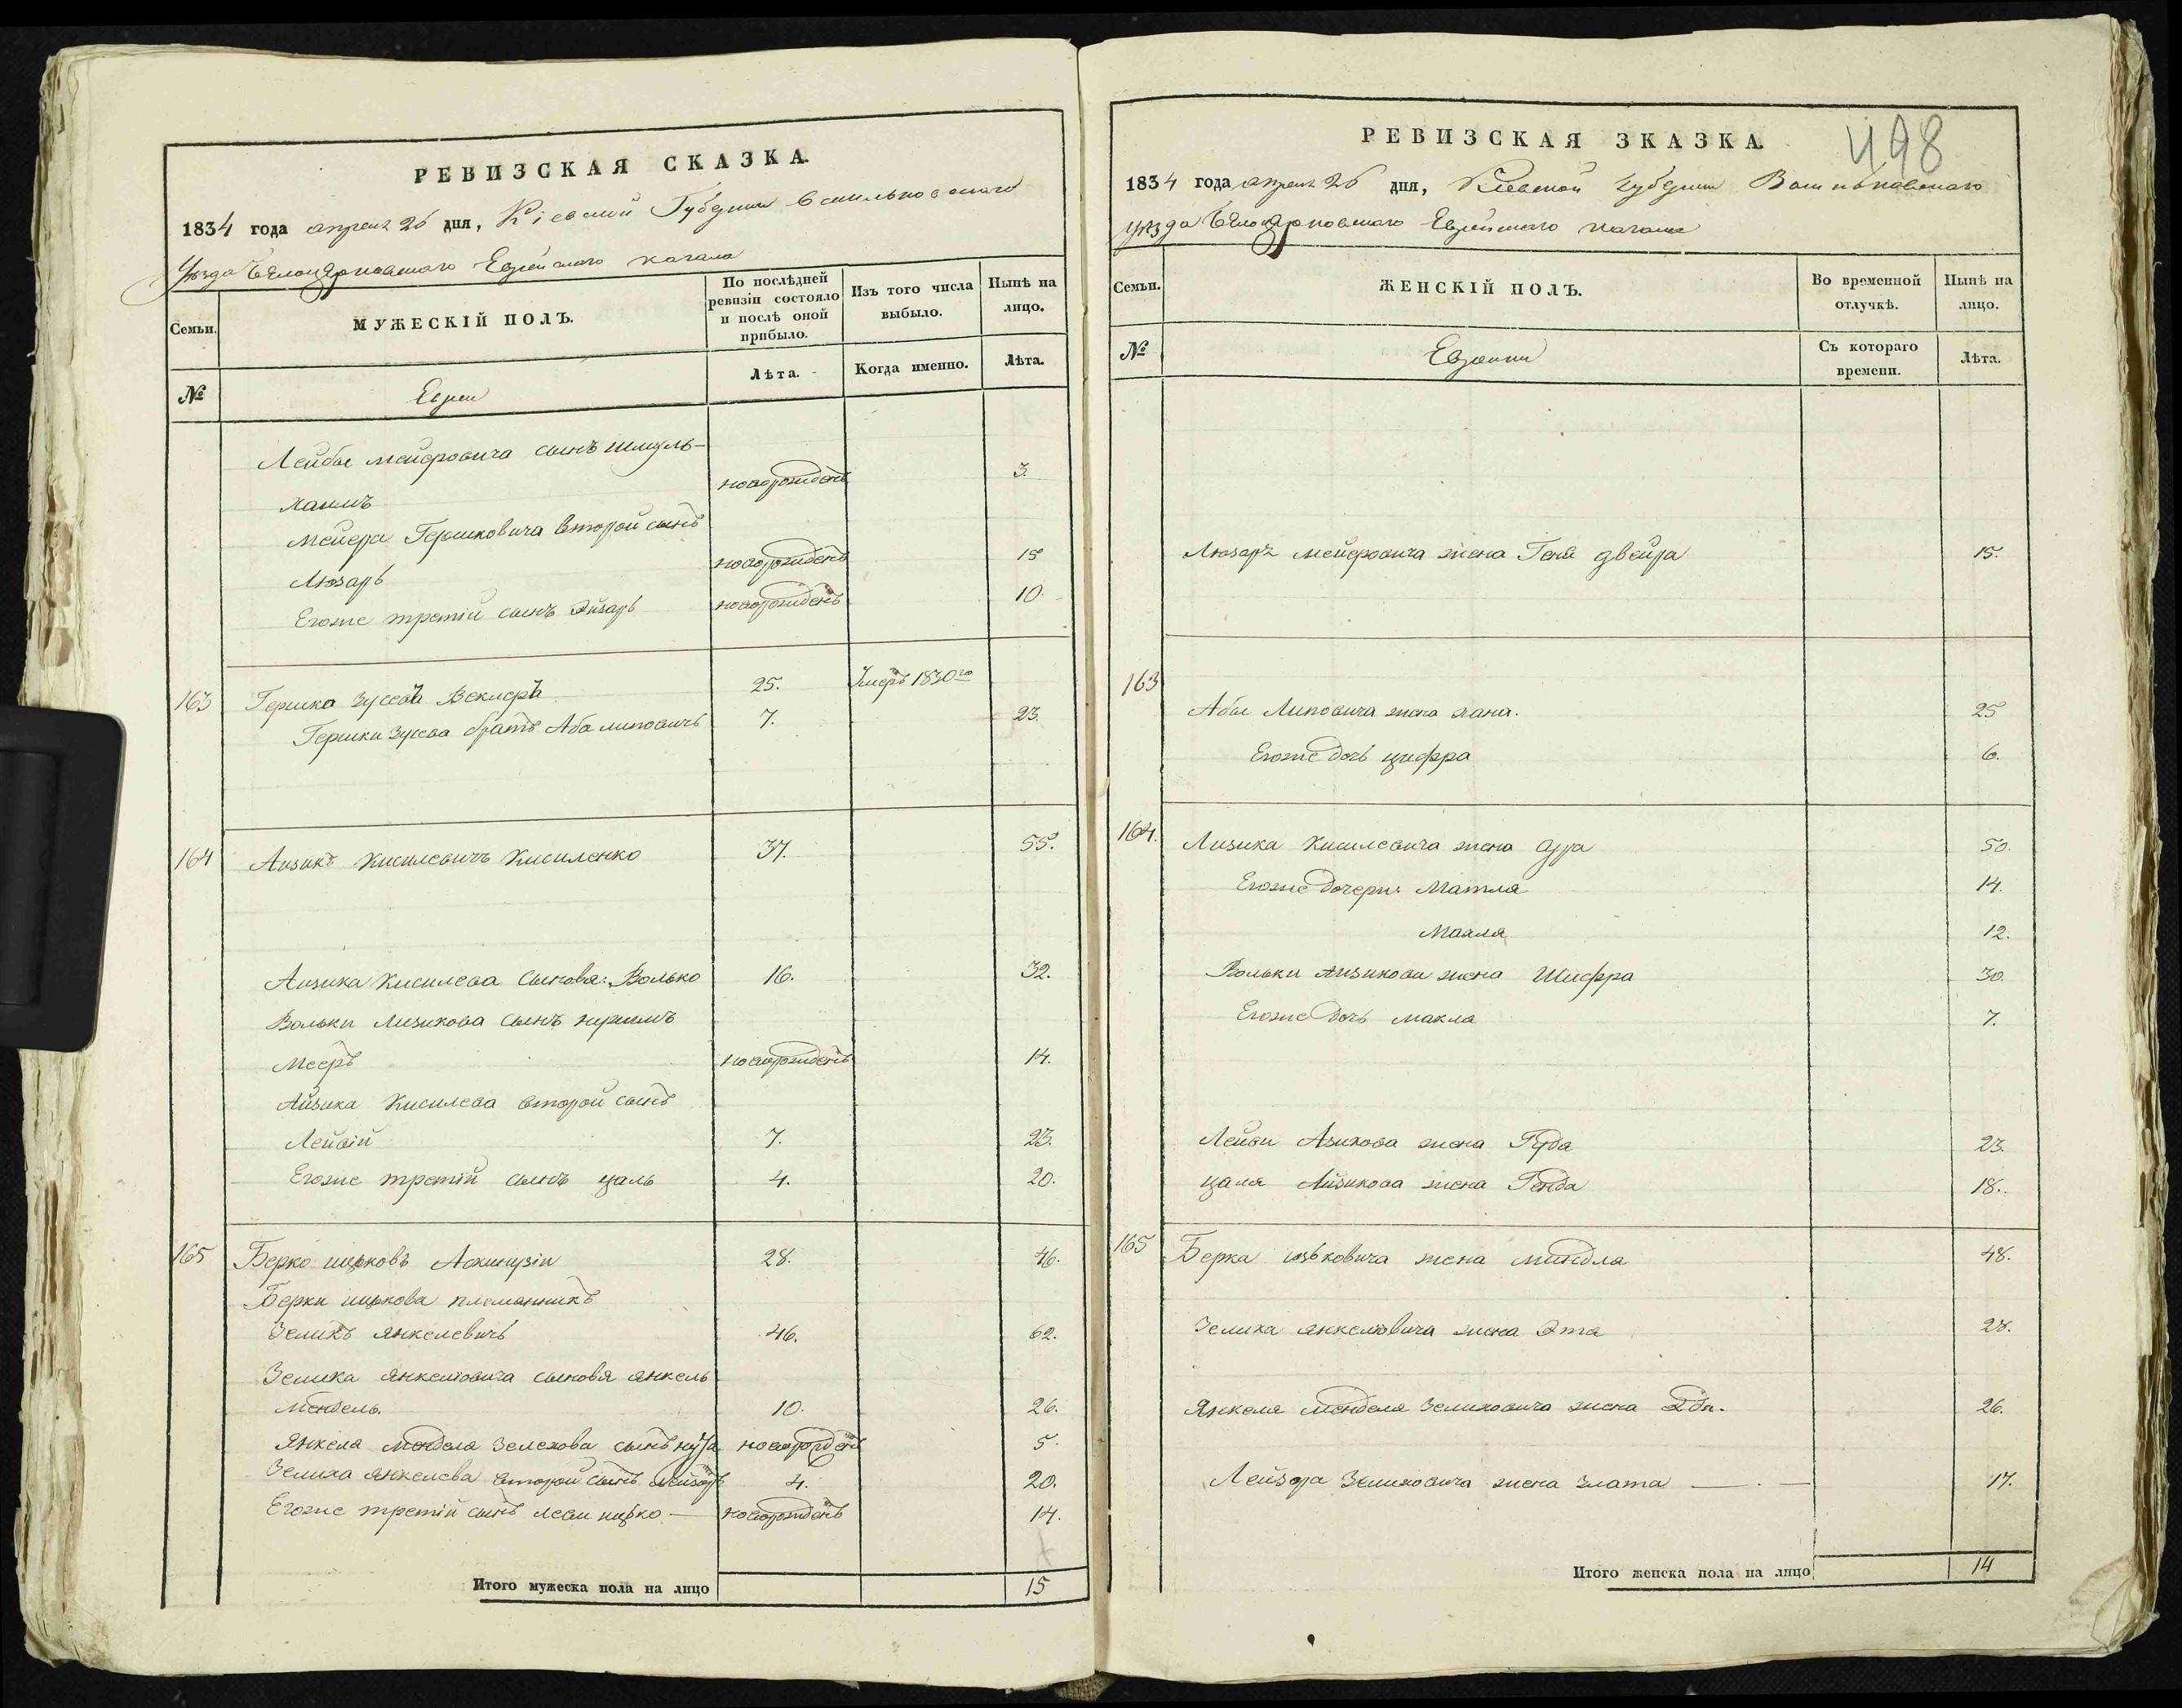 РЕВИЗСКАЯ СКАЗКА.
1834 года апреля 26 дня, Кіевской Губерніи Васильковскаго
Уезда Белоцерковскаго Еврейскаго кагала
Семьи.
МУЖЕСКІЙ ПОЛЪ.
По послѣдней ревизіи состояло и послѣ оной прибыло.
Изъ того числа выбыло.
Нынѣ на лицо.
№
Евреи
Лѣта.
Когда именно.
Лѣта.
Лейбы Мейеровича сынъ Шмуль-
Хаимъ новорожденъ 3.
Мейера Гершковича второй сынъ
Люзаръ новорожденъ 15
Егоже третій сынъ Айзаръ новорожденъ 10
163 Гершко Зусевъ Веклеръ 25. Умеръ 1830го
Гершки Зусева братъ Аба Липовичъ 7. 23.
164 Аизикъ Кисилевичъ Кисиленко 37. 55.
Аизика Кисилева сыновья: Волько 16. 32.
Вольки Аизикова сынъ Нершымъ
Мееръ новорожденъ 14.
Айзика Кисилева второй сынъ
Лейвій 7. 23.
Егоже третій сынъ Цаль 4. 20.
165 Берко Ицковъ Аскинузіи 28. 46.
Берки Ицкова племянникъ
Зелихъ Янкелевичъ 46. 62.
Зелиха Янкелювича сыновя Янкель
Мендель. 10. 26.
Янкела Мендела Зелехова сынъ Нуҳа новорожденъ 5.
Зелиха Янкелева второй сынъ Лейзоръ 4. 20.
Егоже третій сынъ Леви Ицко — новорожденъ 14.
Итого мужеска пола на лицо 15
498
РЕВИЗСКАЯ ЗКАЗКА.
1834 года апреля 26 дня, Кіевской Губерніи Васильковскаго
уезда Белоцерковскаго Еврейскаго кагала
Семьи.
ЖЕНСКІЙ ПОЛЪ.
Во временной отлучкѣ.
Нынѣ на лицо.
№
Еврейки
Съ котораго времени.
Лѣта.
Люзара Мейеровича жена Геня Двейра 15.
163
Абы Липовича жена Хана. 25
Егоже дочь Цифра 6.
164. Аизика Кисилевича жена Сура 50.
Егоже дочери: Матля 14.
Махля 12.
Вольки Аизикова жена Шифра 30.
Егоже дочь Макла 7.
Лейви Азикова жена Гуда 23.
Цаля Айзикова жена Генда 18.
165 Берка Ицьковича жена Миндла 48.
Зелиха Янкелювича жена Эта 28.
Янкеля Менделя Зелиховича жена Эдя. 26.
Лейзора Зелиховича жена Злата — . — 17.
Итого женска пола на лицо 14